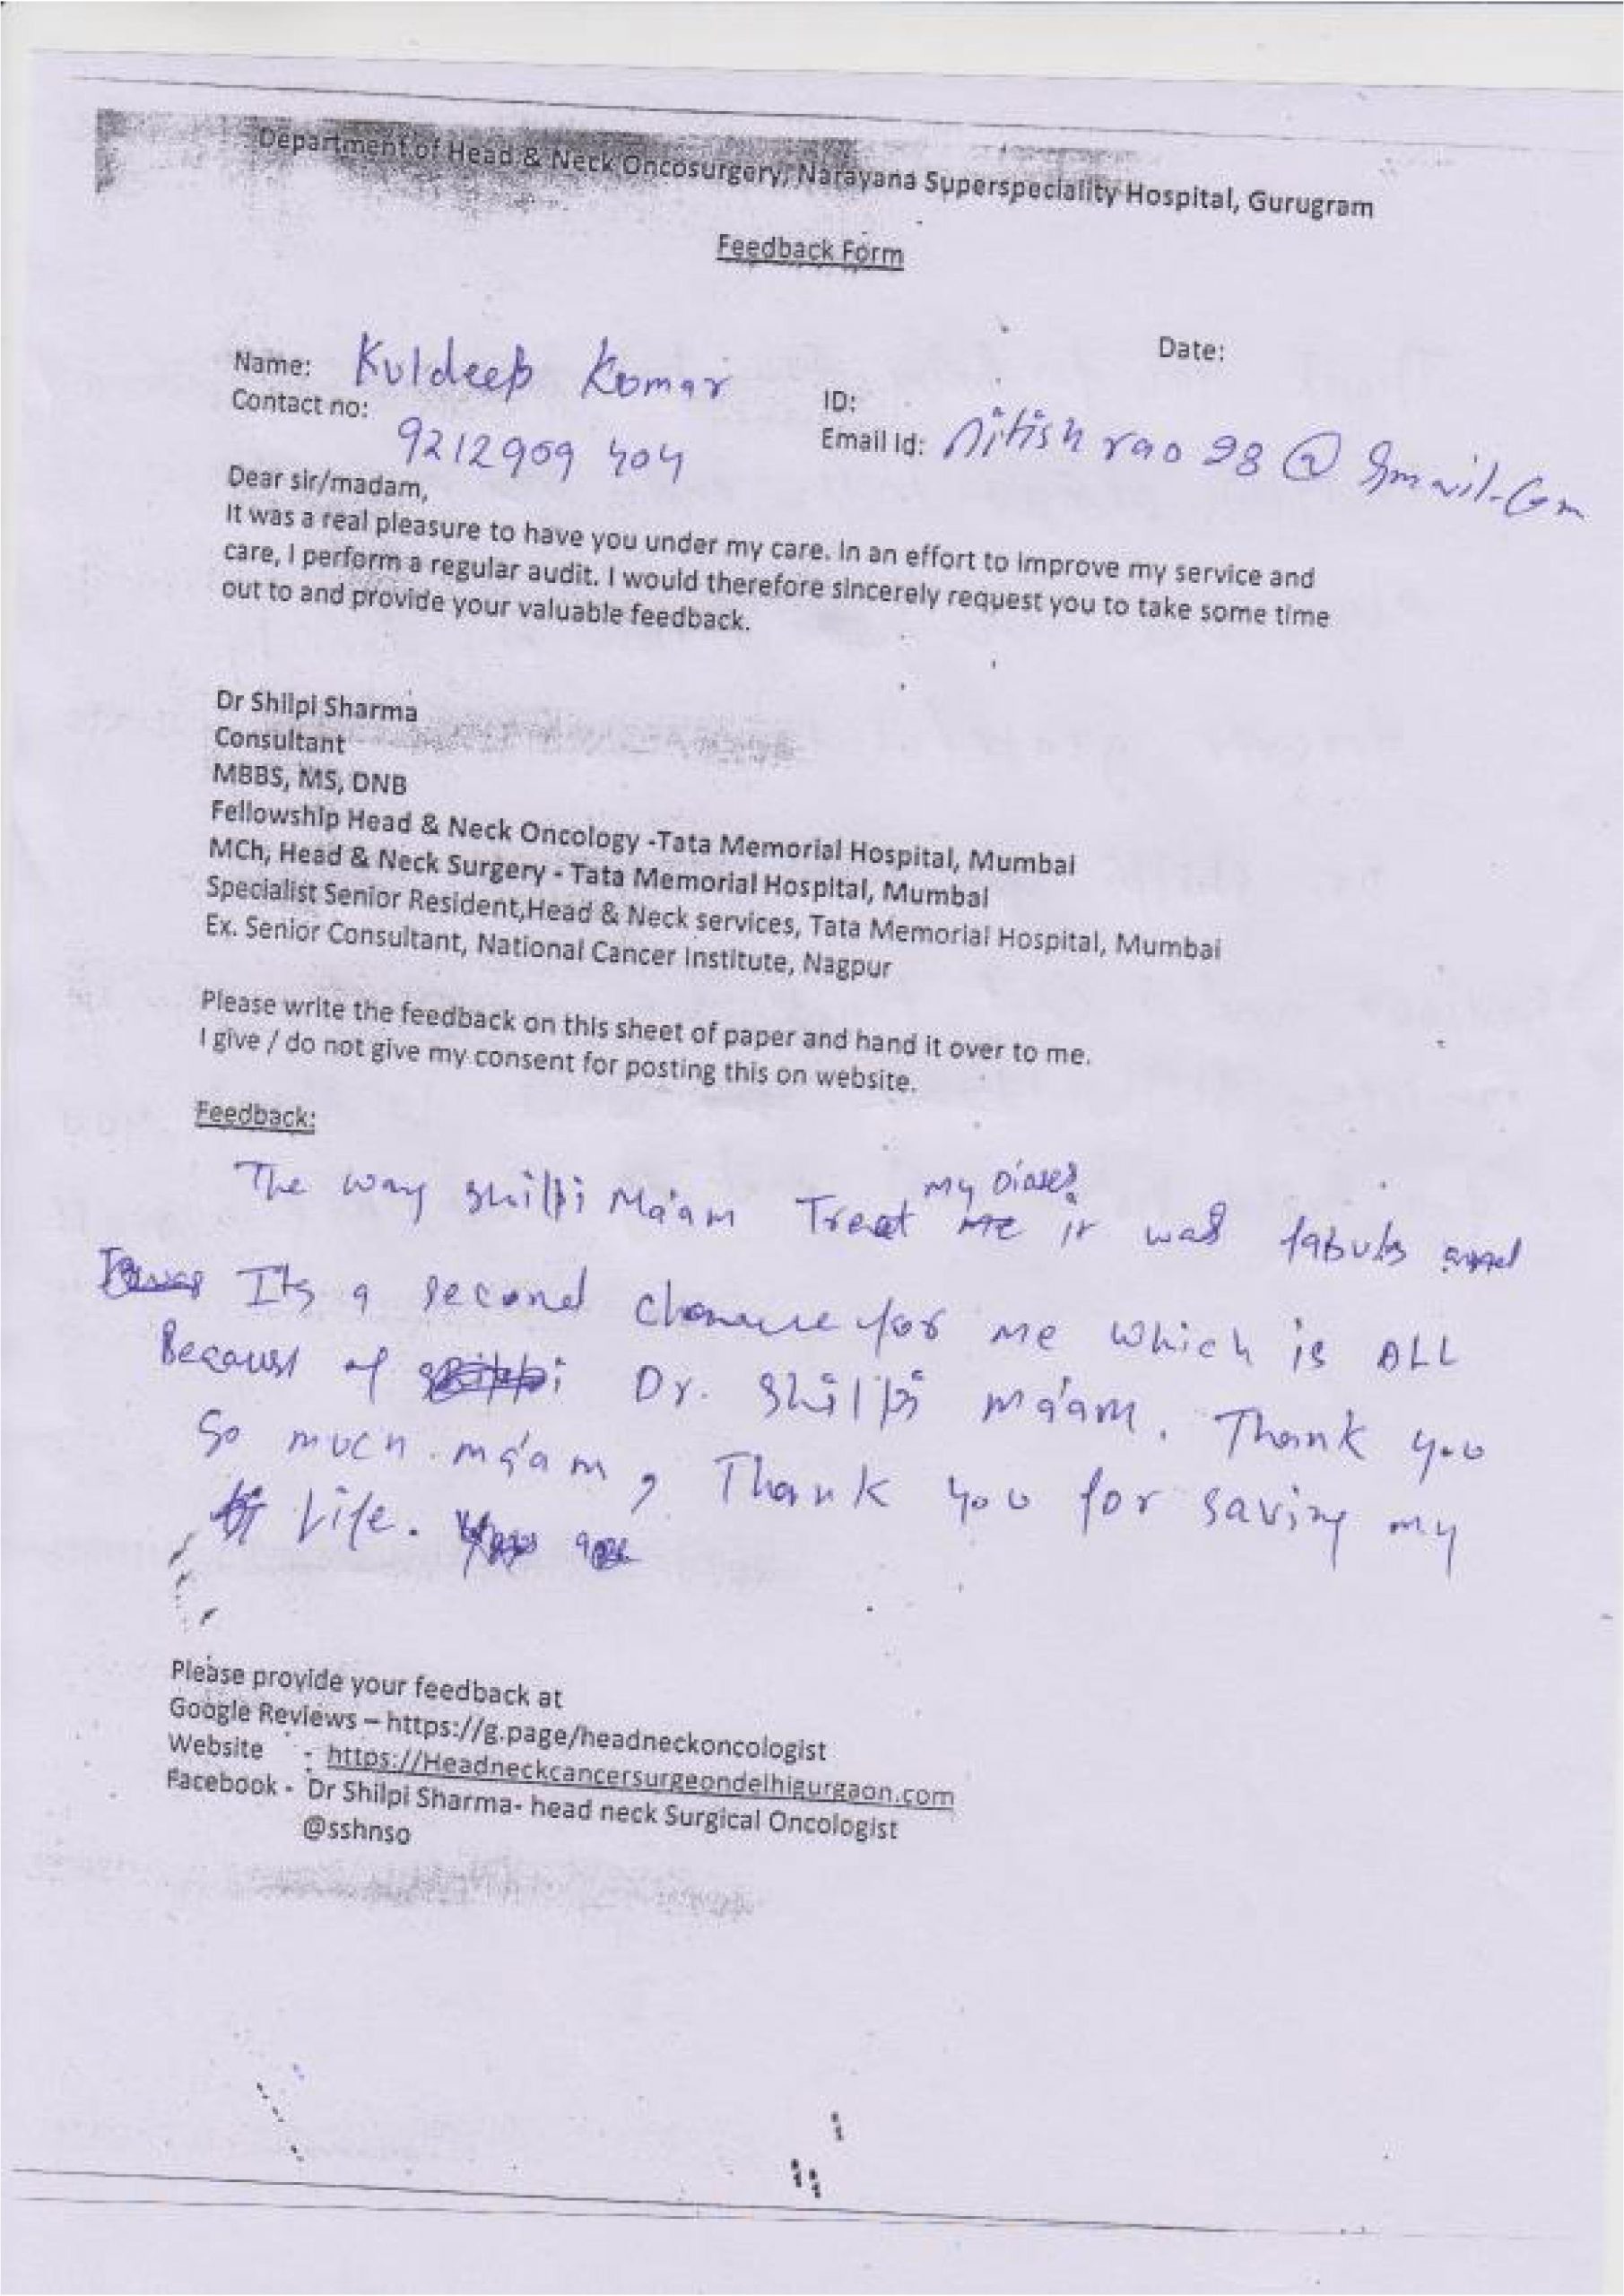 Department of Head & Neck Oncosurgery, Narayana Superspeciality Hospital, Gurugram
Feedback Form
Date:
Name: Kuldeep Kumar
Contact no: 9212909404
ID:
Email Id: nitishrao98@gmail.com
Dear sir/madam,
It was a real pleasure to have you under my care. In an effort to improve my service and
care, I perform a regular audit. I would therefore sincerely request you to take some time
out to and provide your valuable feedback.
Dr Shilpi Sharma
Consultant
MBBS, MS, DNB
Fellowship Head & Neck Oncology -Tata Memorial Hospital, Mumbai
MCh, Head & Neck Surgery - Tata Memorial Hospital, Mumbai
Specialist Senior Resident,Head & Neck services, Tata Memorial Hospital, Mumbai
Ex. Senior Consultant, National Cancer Institute, Nagpur
Please write the feedback on this sheet of paper and hand it over to me.
I give / do not give my consent for posting this on website.
Feedback:
The way Shilpi Ma'am Treat my it was and
Its a second chance for me which is ALL
Because of Dr. Shilpi ma'am. Thank you
So much ma'am, Thank you for saving my
Life.
Please provide your feedback at
Google Reviews – https://g.page/headneckoncologist
Website - https://Headneckcancersurgeondelhigurgaon.com
Facebook - Dr Shilpi Sharma- head neck Surgical Oncologist
@sshnso